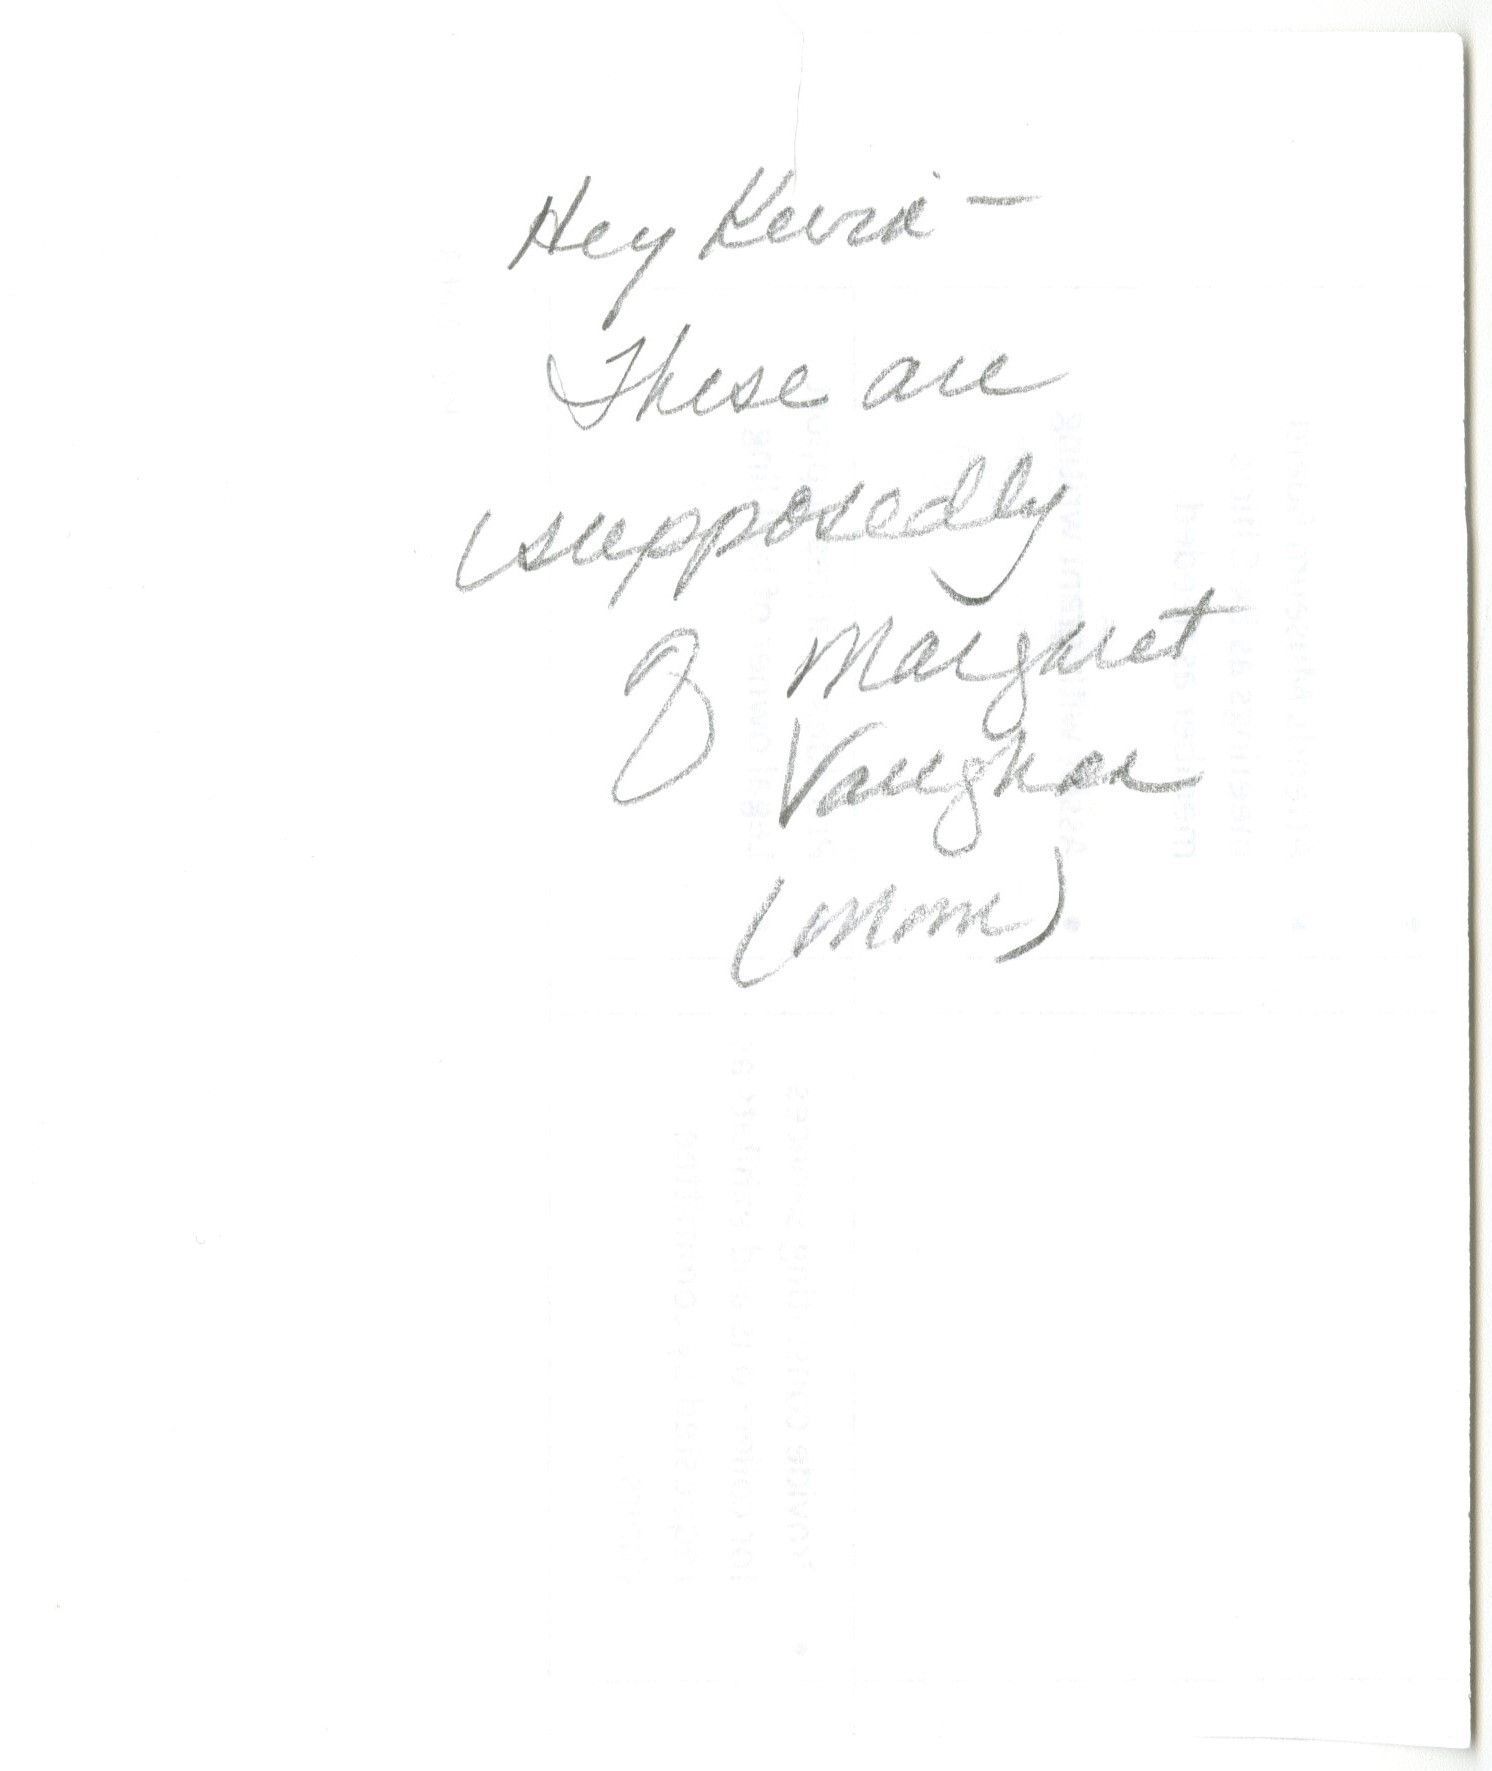 Hey Kevin —
These are
supposedly
of Margaret
Vaughan
(Mom)